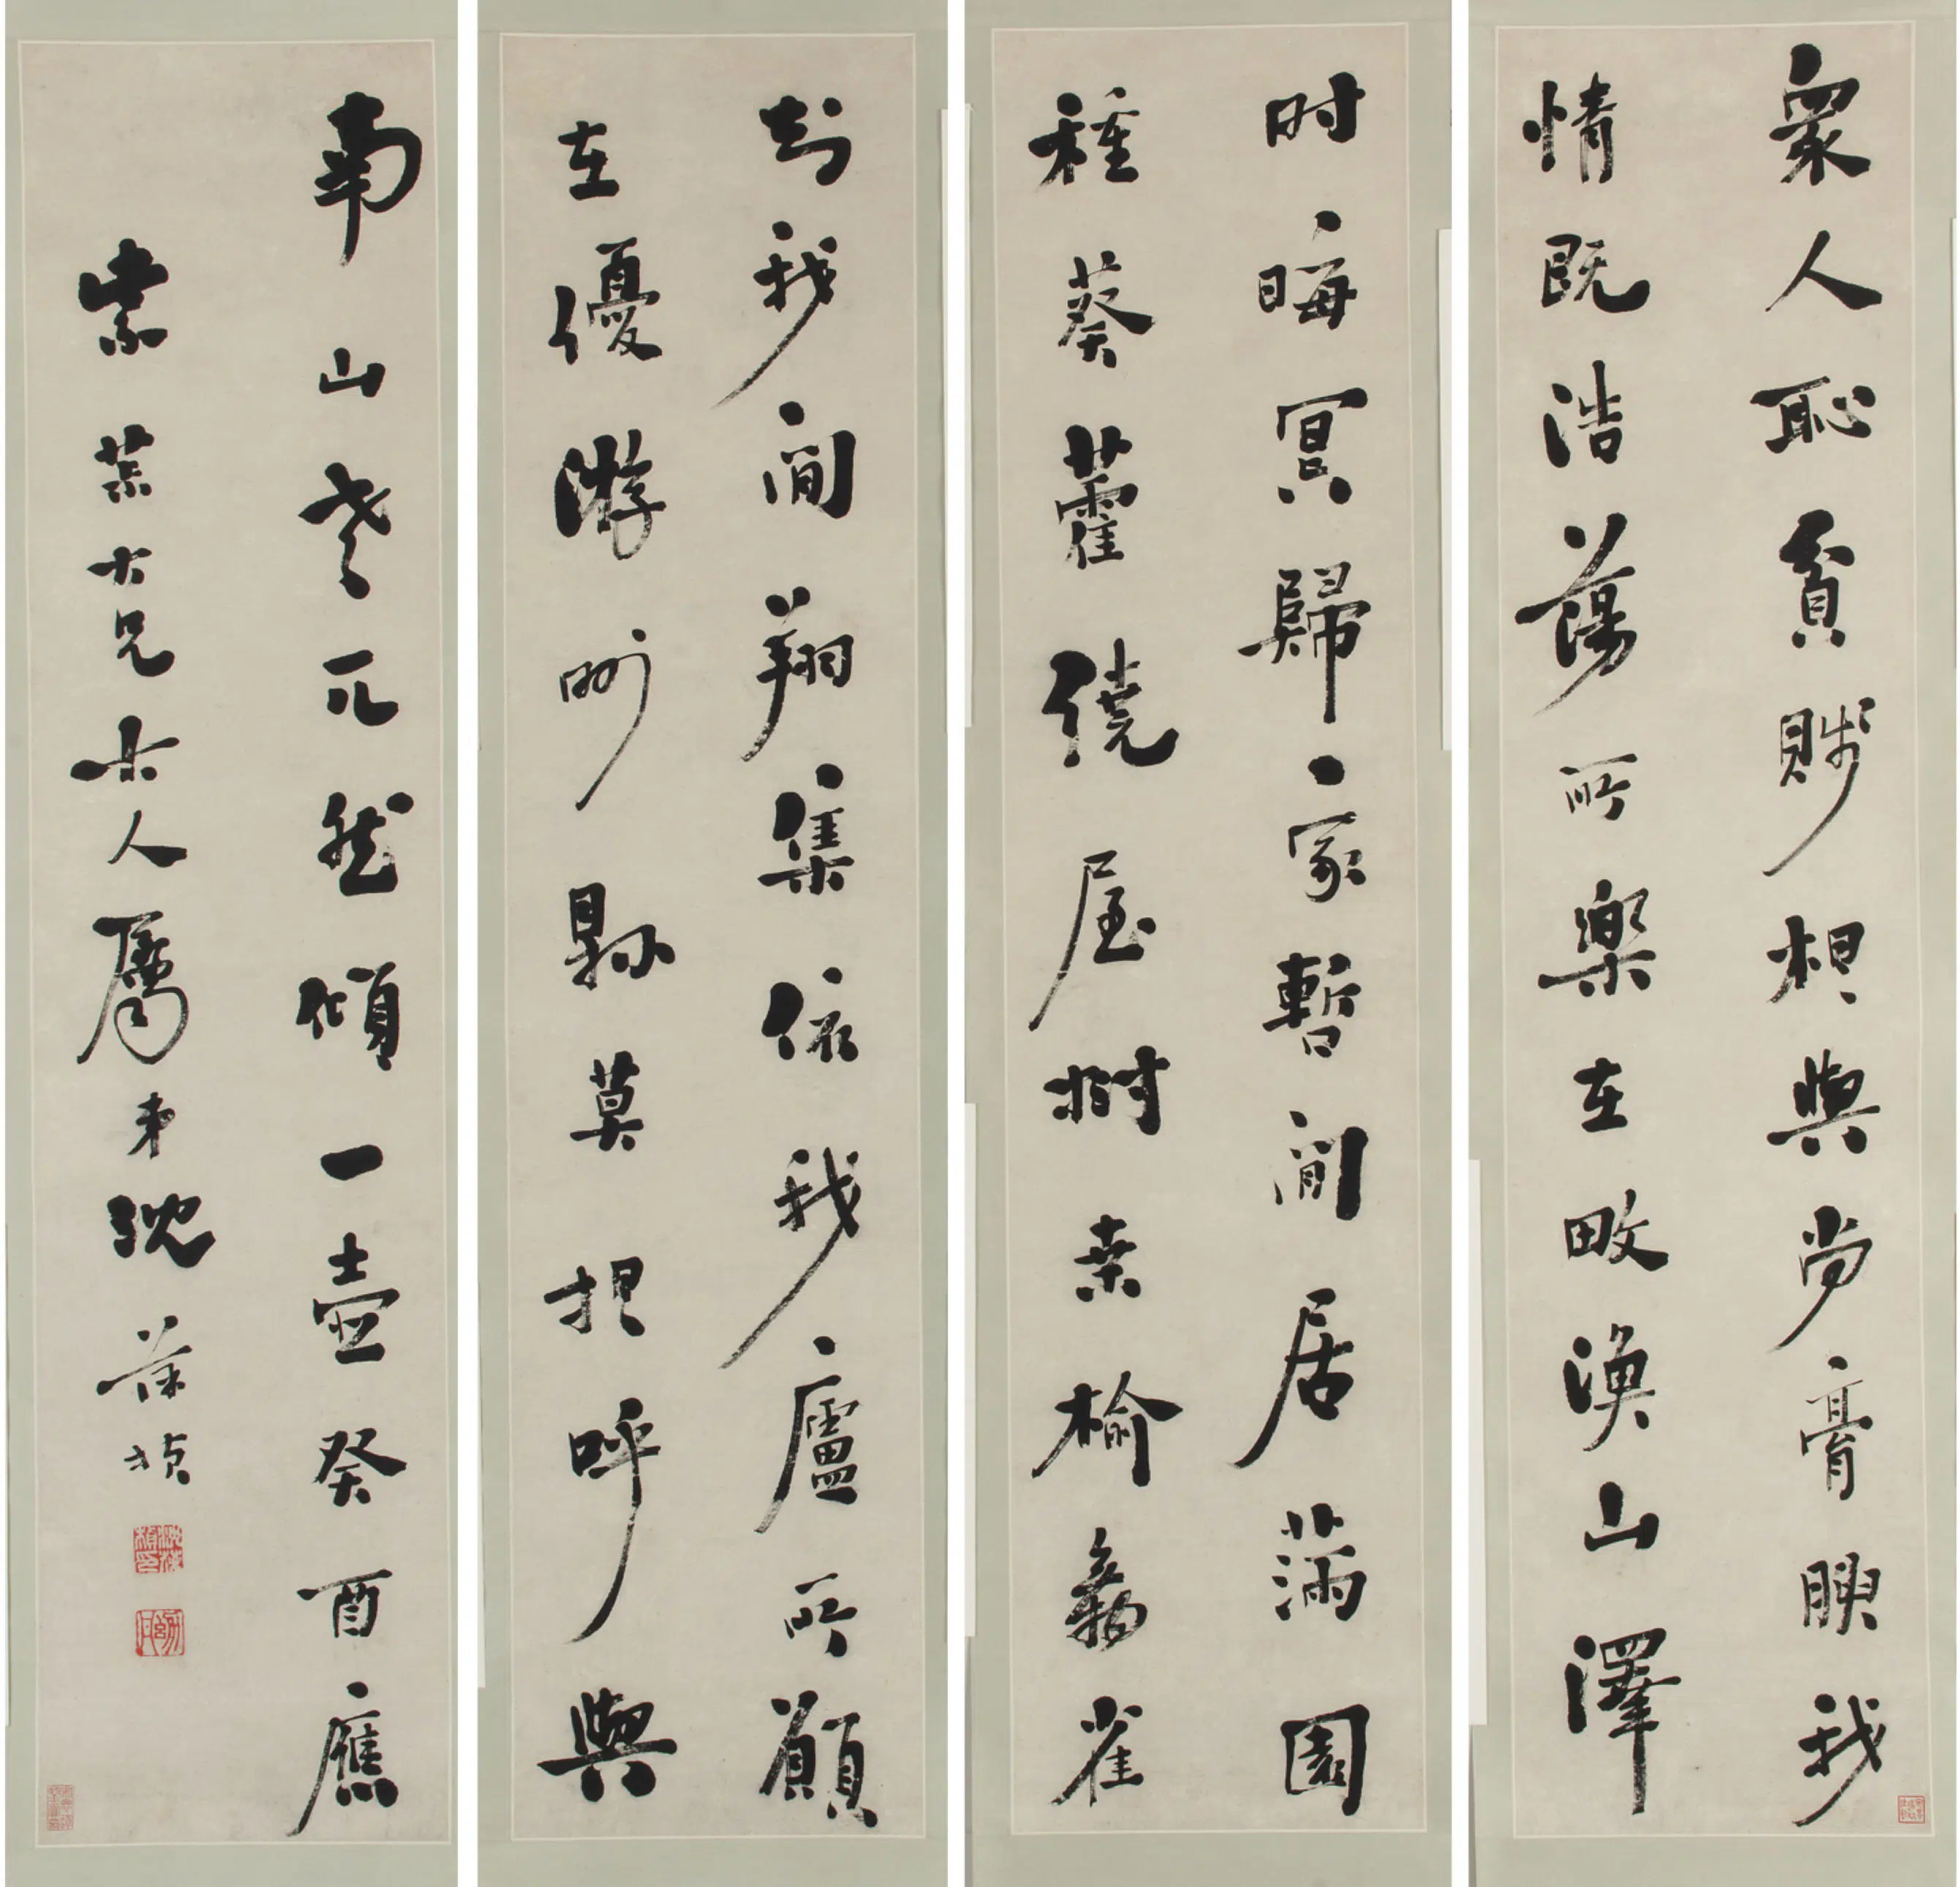 眾人恥貧賤相與尚膏腴我
情既浩蕩所樂在畋漁山澤
时晦冥歸家暫閒居滿園
種葵藿繞屋樹桑榆禽雀
知我閒翔集依我廬所願
在優游州縣莫相呼與
南山老兀然傾一壺癸酉應
紫大兄大人屬弟沈葆楨
沈葆楨印
幼丹